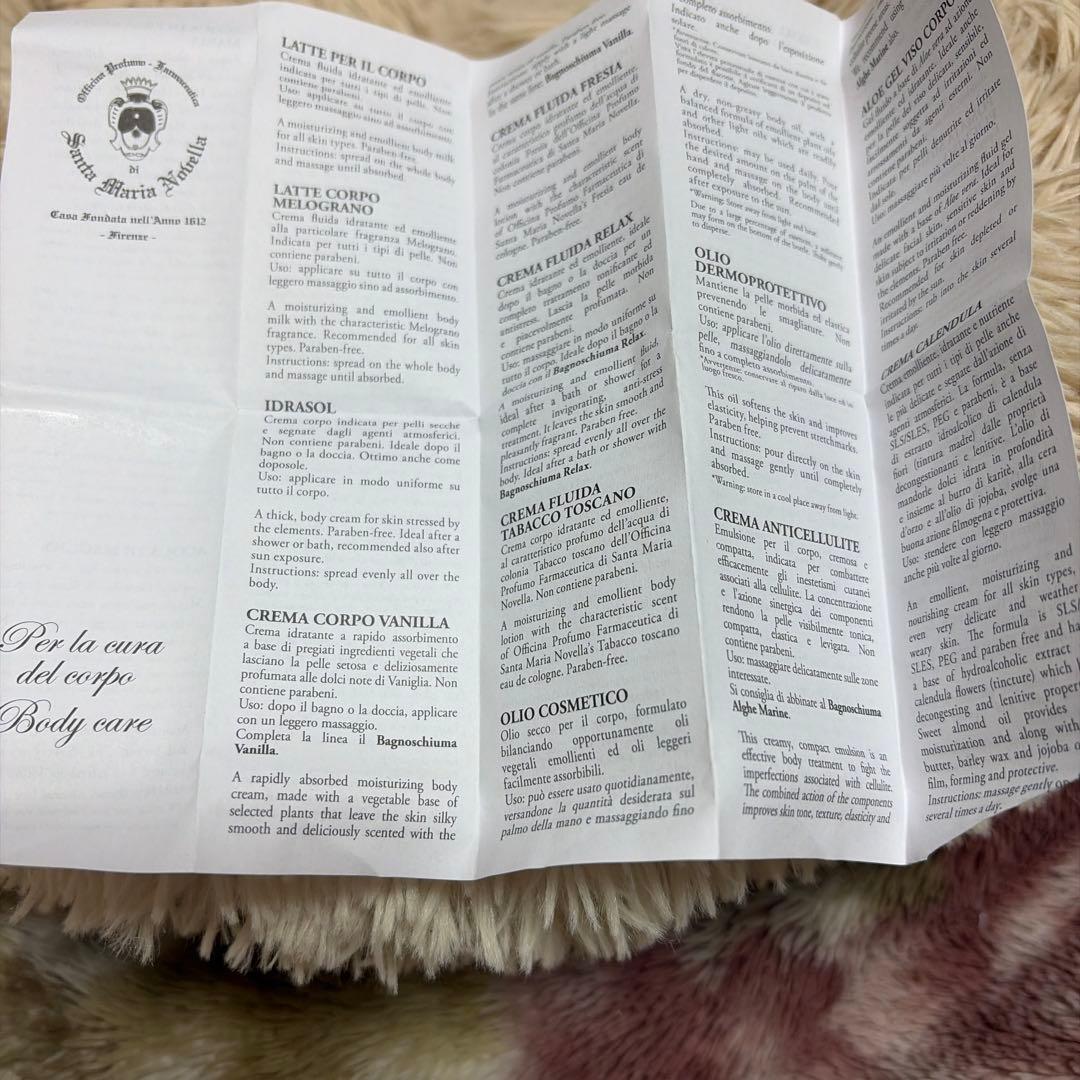 Officina Profumo - Farmaceutica
di
Santa Maria Novella
Casa Fondata nell'Anno 1612
- Firenze -
Per la cura
del corpo
Body care
LATTE PER IL CORPO
Crema fluida idratante ed emolliente
indicata per tutti i tipi di pelle. Non
contiene parabeni.
Uso: applicare su tutto il corpo con
leggero massaggio sino ad assorbimento.
A moisturizing and emollient body milk
for all skin types. Paraben-free.
Instructions: spread on the whole body
and massage until absorbed.
LATTE CORPO
MELOGRANO
Crema fluida idratante ed emolliente
alla particolare fragranza Melograno.
Indicata per tutti i tipi di pelle. Non
contiene parabeni.
Uso: applicare su tutto il corpo con
leggero massaggio sino ad assorbimento.
A moisturizing and emollient body
milk with the characteristic Melograno
fragrance. Recommended for all skin
types. Paraben-free.
Instructions: spread on the whole body
and massage until absorbed.
IDRASOL
Crema corpo indicata per pelli secche
e segnate dagli agenti atmosferici.
Non contiene parabeni. Ideale dopo il
bagno o la doccia. Ottimo anche come
doposole.
Uso: applicare in modo uniforme su
tutto il corpo.
A thick, body cream for skin stressed by
the elements. Paraben-free. Ideal after a
shower or bath, recommended also after
sun exposure.
Instructions: spread evenly all over the
body.
CREMA CORPO VANILLA
Crema idratante a rapido assorbimento
a base di pregiati ingredienti vegetali che
lasciano la pelle setosa e deliziosamente
profumata alle dolci note di Vaniglia. Non
contiene parabeni.
Uso: dopo il bagno o la doccia, applicare
con un leggero massaggio.
Completa la linea il Bagnoschiuma
Vanilla.
A rapidly absorbed moisturizing body
cream, made with a vegetable base of
selected plants that leave the skin silky
smooth and deliciously scented with the
with a light massage
Bagnoschiuma Vanilla.
CREMA FLUIDA FRESIA
Crema corpo idratante ed emolliente,
al caratteristico profumo dell'acqua di
colonia Fresia dell'Officina Profumo
Farmaceutica di Santa Maria Novella.
Non contiene parabeni.
A moisturizing and emollient body
lotion with the characteristic scent
of Officina Profumo Farmaceutica di
Santa Maria Novella's Fresia eau de
cologne. Paraben-free.
CREMA FLUIDA RELAX
Crema idratante ed emolliente, ideale
dopo il bagno o la doccia per un
completo trattamento tonificante ed
antistress. Lascia la pelle morbida
e piacevolmente profumata. Non
contiene parabeni.
Uso: massaggiare in modo uniforme su
tutto il corpo. Ideale dopo il bagno o la
doccia con il Bagnoschiuma Relax.
A moisturizing and emollient fluid,
ideal after a bath or shower for a
complete invigorating, anti-stress
treatment. It leaves the skin smooth and
pleasantly fragrant. Paraben free.
Instructions: spread evenly all over the
body. Ideal after a bath or shower with
Bagnoschiuma Relax.
CREMA FLUIDA
TABACCO TOSCANO
Crema corpo idratante ed emolliente,
al caratteristico profumo dell'acqua di
colonia Tabacco toscano dell'Officina
Profumo Farmaceutica di Santa Maria
Novella. Non contiene parabeni.
A moisturizing and emollient body
lotion with the characteristic scent
of Officina Profumo Farmaceutica di
Santa Maria Novella's Tabacco toscano
eau de cologne. Paraben-free.
OLIO COSMETICO
Olio secco per il corpo, formulato
bilanciando opportunamente oli
vegetali emollienti ed oli leggeri
facilmente assorbibili.
Uso: può essere usato quotidianamente,
versandone la quantità desiderata sul
palmo della mano e massaggiando fino
completo assorbimento.
Indicato anche dopo l'esposizione
solare.
A dry, non-greasy, body oil, with a
balanced formula of emollient plant oil
and other light oils which are readily
absorbed.
Instructions: may be used daily. Pour
the desired amount on the palm of the
hand and massage on the body until
completely absorbed. Recommended
after exposure to the sun.
*Warning: Store away from light and heat.
Due to a large percentage of
may form on the bottom of the bottle. Shake gently
to disperse.
OLIO
DERMOPROTETTIVO
Mantiene la pelle morbida ed elastica
prevenendo le smagliature. Non
contiene parabeni.
Uso: applicare l'olio direttamente sulla
pelle, massaggiandolo delicatamente
fino a completo assorbimento.
*Avvertenze: conservare al riparo dalla luce ed in
luogo fresco.
This oil softens the skin and improves
elasticity, helping prevent stretchmarks.
Paraben free.
Instructions: pour directly on the skin
and massage gently until completely
absorbed.
*Warning: store in a cool place away from light.
CREMA ANTICELLULITE
Emulsione per il corpo, cremosa e
compatta, indicata per combattere
efficacemente gli inestetismi cutanei
associati alla cellulite. La concentrazione
e l'azione sinergica dei componenti
tendono la pelle visibilmente tonica,
compatta, elastica e levigata. Non
contiene parabeni.
Uso: massaggiare delicatamente sulle zone
interessate.
Si consiglia di abbinare al Bagnoschiuma
Alghe Marine.
This creamy, compact emulsion is an
effective body treatment to fight the
imperfections associated with cellulite.
The combined action of the components
improves skin tone, texture, elasticity and
using
Alghe Marine also.
ALOE GEL VISO CORPO
Gel fluido a base di Aloe vera ad azione
Ideale anche
per la pelle del viso delicata, sensibile,
facilmente soggetta ad irritazioni ed
arrossamenti da agenti esterni. Non
contiene parabeni.
Indicata per pelli denutrite ed irritate
dal sole.
Uso: massaggiare più volte al giorno.
An emollient and moisturizing fluid gel
made with a base of Aloe vera. Ideal for
delicate facial skin, sensitive skin and
skin subject to irritation or reddening by
the elements. Paraben free.
Recommended for skin depleted or
irritated by the sun.
Instructions: rub into the skin several
times a day.
CREMA CALENDULA
Crema emolliente, idratante e nutriente
indicata per tutti i tipi di pelle anche
le più delicate e segnate dall'azione di
agenti atmosferici. La formula, senza
SLS/SLES, PEG e parabeni, è a base
di estratto idroalcolico di calendula
fiori (tintura madre) dalle proprietà
decongestionanti e lenitive. L'olio di
mandorle dolci idrata in profondità
e insieme al burro di karité, alla cera
d'orzo e all'olio di jojoba, svolge una
buona azione filmogena e protettiva.
Uso: stendere con leggero massaggio
anche più volte al giorno.
An emollient, moisturizing and
nourishing cream for all skin types,
even very delicate and weather
weary skin. The formula is SLS/
SLES, PEG and paraben free and ha
a base of hydroalcoholic extract
calendula flowers (tincture) which
decongesting and lenitive proper
Sweet almond oil provides
moisturization and along with
butter, barley wax and jojoba o
film, forming and protective.
Instructions: massage gently on
several times a day.